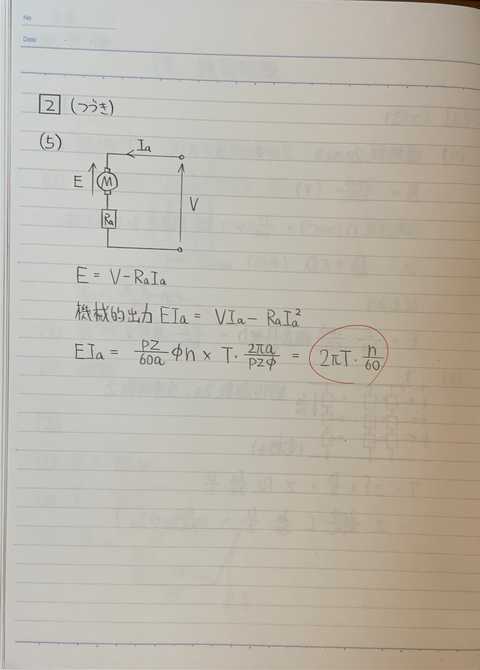 No
Date
2 (つづき)
(5)
Ia
E
M
Ra
V
E = V-RaIa
機械的出力 EIa = VIa - RaIa²
EIa = pz/60a φn × T・2πa/pzφ = 2πT・n/60